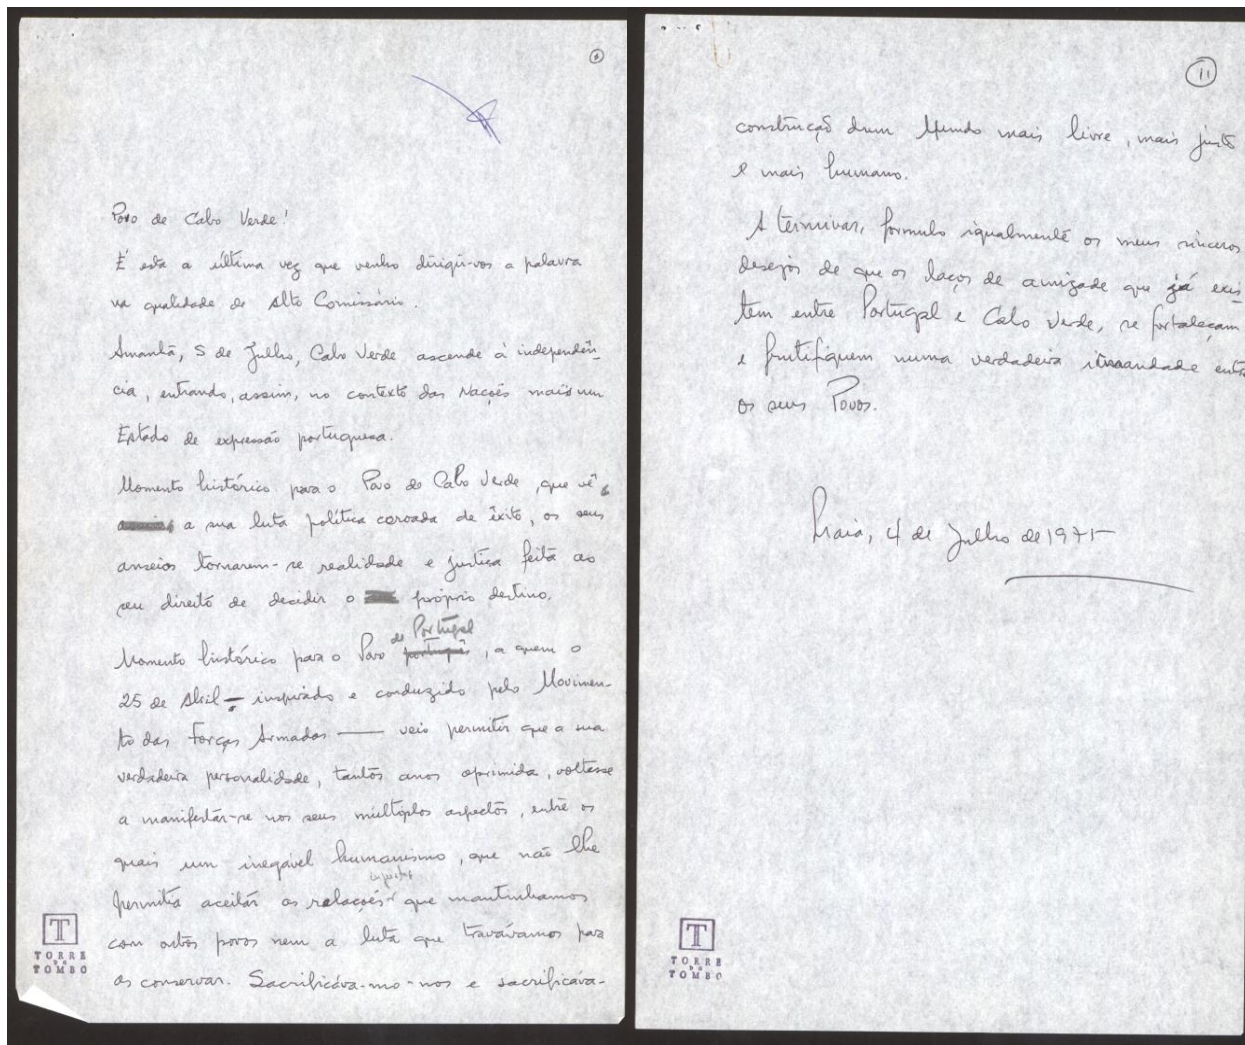 Povo de Cabo Verde!
É esta a última vez que venho dirigir-vos a palavra
na qualidade de Alto Comissário.
Amanhã, 5 de Julho, Cabo Verde ascende à independên-
cia, entrando, assim, no contexto das Nações mais um
Estado de expressão portuguesa.
Momento histórico para o Povo de Cabo Verde, que vê
a sua luta política coroada de êxito, os seus
anseios tornarem-se realidade e justiça feita ao
seu direito de decidir o próprio destino.
de Portugal
Momento histórico para o Povo português, a quem o
25 de Abril - inspirado e conduzido pelo Movimen-
to das Forças Armadas — veio permitir que a sua
verdadeira personalidade, tantos anos oprimida, voltasse
a manifestar-se nos seus múltiplos aspectos, entre os
quais um inegável humanismo, que não lhe
injustas
permitia aceitar as relações que mantinhamos
com outros povos nem a luta que travávamos para
as conservar. Sacrificáva-mo-nos e sacrificáva-
TORRE
DO
TOMBO
11
construção dum Mundo mais livre, mais justo
e mais humano.
A terminar, formulo igualmente os meus sinceros
desejos de que os laços de amizade que já exis-
tem entre Portugal e Cabo Verde, se fortaleçam
e frutifiquem numa verdadeira irmandade entre
os seus Povos.
Praia, 4 de Julho de 1975
TORRE
DO
TOMBO